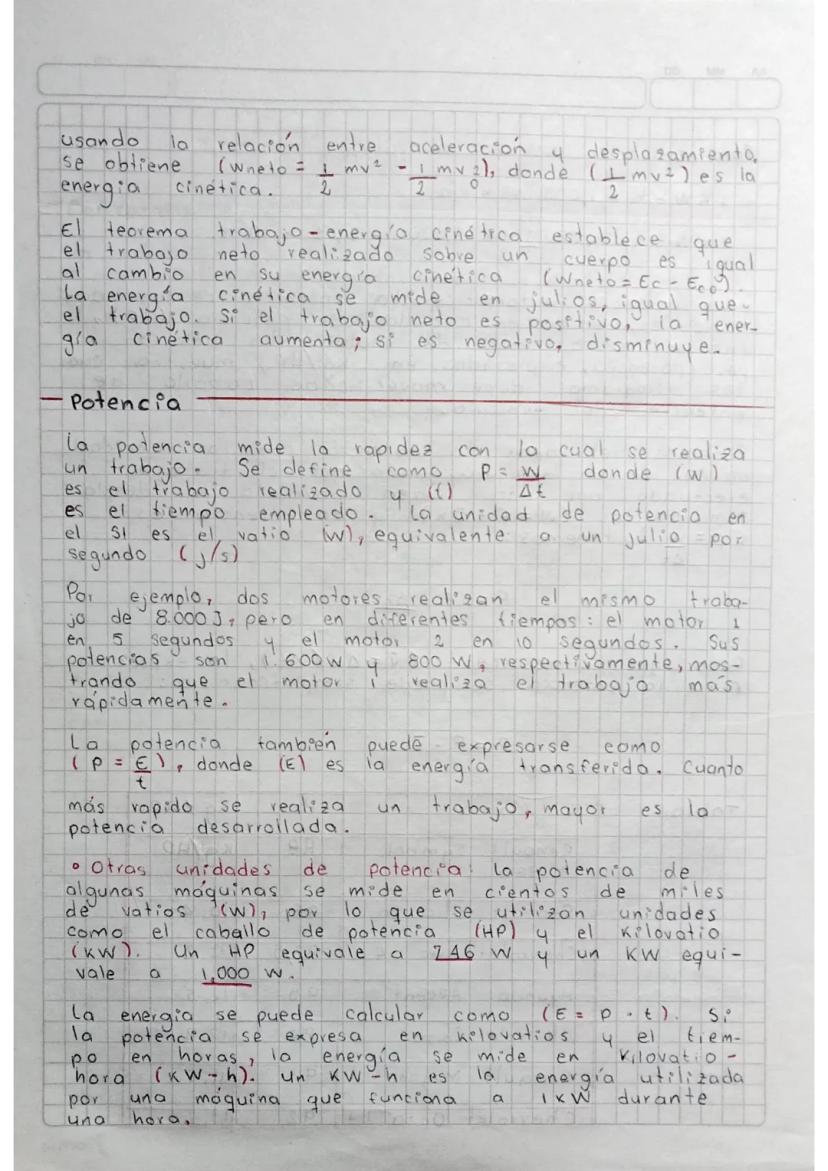 DD MM AA
usando la relación entre aceleración y desplazamiento,
se obtiene (Wneto = 1/2 mv² - 1/2 mv²₀), donde (1/2 mv²) es la
energía cinética.
El teorema trabajo-energía cinética establece que
el trabajo neto realizado sobre un cuerpo es igual
al cambio en su energía cinética (Wneto = Ec - Ec₀).
La energía cinética se mide en julios, igual que
el trabajo. Si el trabajo neto es positivo, la ener-
gía cinética aumenta; si es negativo, disminuye.
Potencia
La potencia mide la rapidez con la cual se realiza
un trabajo. Se define como P = W/Δt donde (W)
es el trabajo realizado y (t)
es el tiempo empleado. La unidad de potencia en
el SI es el vatio (W), equivalente a un julio por
segundo (J/s)
Por ejemplo, dos motores realizan el mismo traba-
jo de 8.000 J, pero en diferentes tiempos: el motor 1
en 5 segundos y el motor 2 en 10 segundos. Sus
potencias son 1.600 W y 800 W, respectivamente, mos-
trando que el motor 1 realiza el trabajo más
rápidamente.
La potencia también puede expresarse como
(P = E/t), donde (E) es la energía transferida. Cuanto
más rapido se realiza un trabajo, mayor es la
potencia desarrollada.
• Otras unidades de potencia: la potencia de
algunas máquinas se mide en cientos de miles
de vatios (W), por lo que se utilizan unidades
como el caballo de potencia (HP) y el kilovatio
(KW). Un HP equivale a 746 W y un KW equi-
vale a 1,000 W.
La energía se puede calcular como (E = P · t). Si
la potencia se expresa en kilovatios y el tiem-
po en horas, la energía se mide en kilovatio-
hora (KW-h). Un KW-h es la energía utilizada
por una máquina que funciona a 1KW durante
una hora.